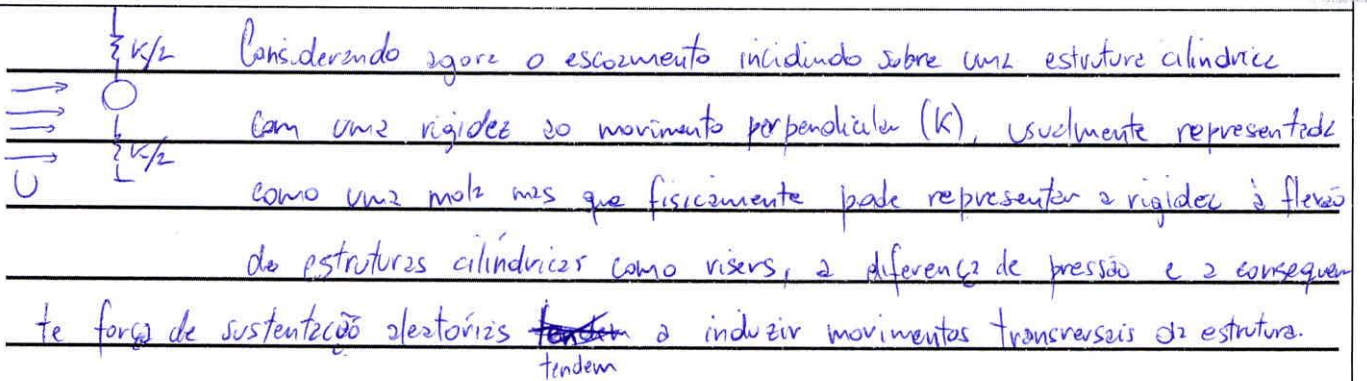 K/2 Considerando agora o escoamento incidindo sobre uma estrutura cilíndrica
com uma rigidez ao movimento perpendicular (K), usualmente representada
K/2
U como uma mola mas que fisicamente pode representar a rigidez à flexão
de estruturas cilíndricas como risers, a diferença de pressão e a consequen
te força de sustentação aleatórias tendem a induzir movimentos transversais da estrutura.
tendem